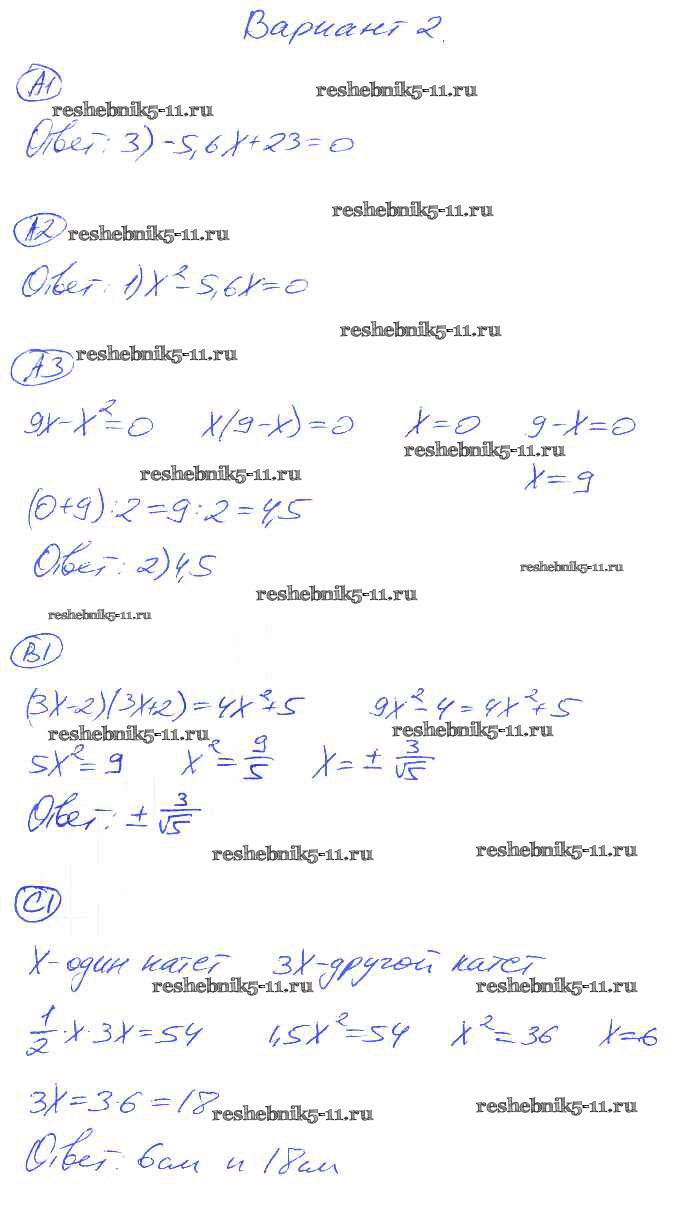 Вариант 2.
А1
reshebnik5-11.ru
reshebnik5-11.ru
Ответ: 3) -5,6x+23=0
reshebnik5-11.ru
А2 reshebnik5-11.ru
Ответ: 1) x²-5,6x=0
reshebnik5-11.ru
А3 reshebnik5-11.ru
9x-x²=0 x(9-x)=0 x=0 9-x=0
reshebnik5-11.ru
reshebnik5-11.ru x=9
(0+9):2=9:2=4,5
Ответ: 2) 4,5 reshebnik5-11.ru
reshebnik5-11.ru
reshebnik5-11.ru
В1
(3x-2)(3x+2)=4x²+5 9x²-4=4x²+5
reshebnik5-11.ru reshebnik5-11.ru
5x²=9 x²=9/5 x=±3/√5
Ответ: ±3/√5
reshebnik5-11.ru reshebnik5-11.ru
С1
x-один катет 3x-другой катет
reshebnik5-11.ru reshebnik5-11.ru
1/2·x·3x=54 1,5x²=54 x²=36 x=6
3x=3·6=18 reshebnik5-11.ru reshebnik5-11.ru
Ответ: 6см и 18см